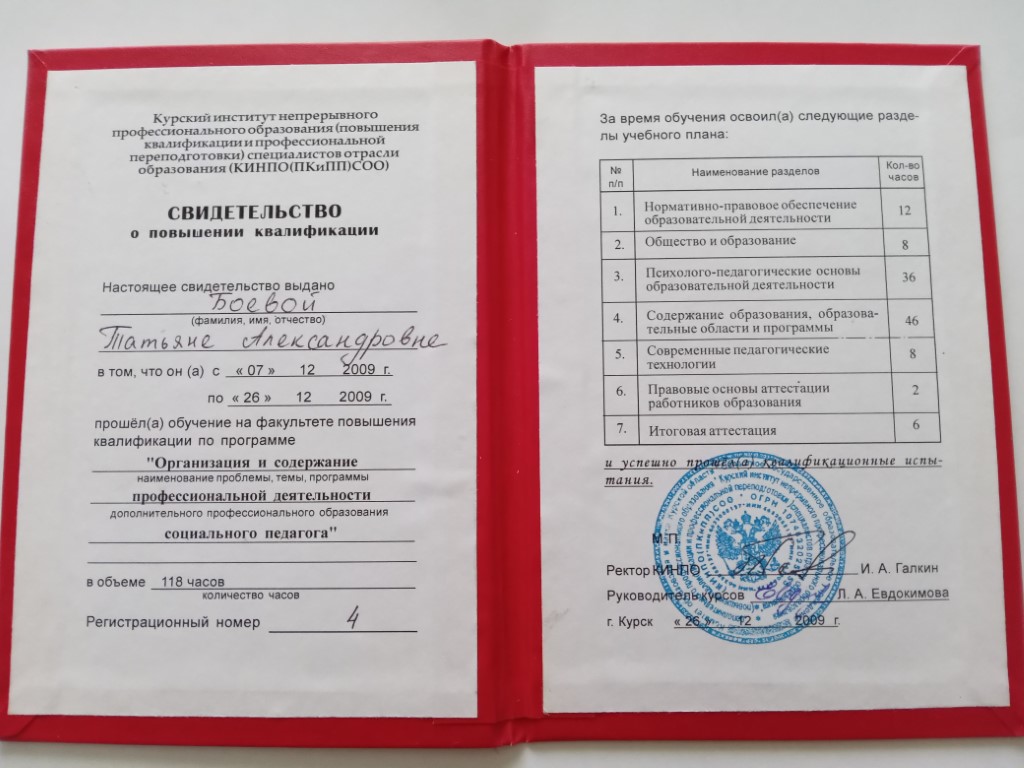 Курский институт непрерывного
профессионального образования (повышения
квалификации и профессиональной
переподготовки) специалистов отрасли
образования (КИНПО(ПКиПП)СОО)
СВИДЕТЕЛЬСТВО
о повышении квалификации
Настоящее свидетельство выдано
Боевой
(фамилия, имя, отчество)
Татьяне Александровне
в том, что он (а) с « 07 » 12 2009 г.
по « 26 » 12 2009 г.
прошёл(а) обучение на факультете повышения
квалификации по программе
"Организация и содержание
наименование проблемы, темы, программы
профессиональной деятельности
дополнительного профессионального образования
социального педагога"
в объеме 118 часов
количество часов
Регистрационный номер 4
За время обучения освоил(а) следующие разде-
лы учебного плана:
№ п/п Наименование разделов Кол-во часов
1. Нормативно-правовое обеспечение
образовательной деятельности 12
2. Общество и образование 8
3. Психолого-педагогические основы
образовательной деятельности 36
4. Содержание образования, образова-
тельные области и программы 46
5. Современные педагогические
технологии 8
6. Правовые основы аттестации
работников образования 2
7. Итоговая аттестация 6
и успешно прошёл(а) квалификационные испы-
тания.
М.П.
Ректор КИНПО И. А. Галкин
Руководитель курсов Л. А. Евдокимова
г. Курск « 26 » 12 2009 г.